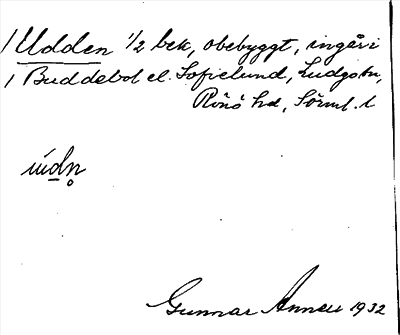 Udden 1/2 bek, obebyggt, ingår i
Buddebol el. Sofielund, Ludgo sn,
Rönö hd, Sörml. l
ú̄dn̥
Gunnar Annell 1932